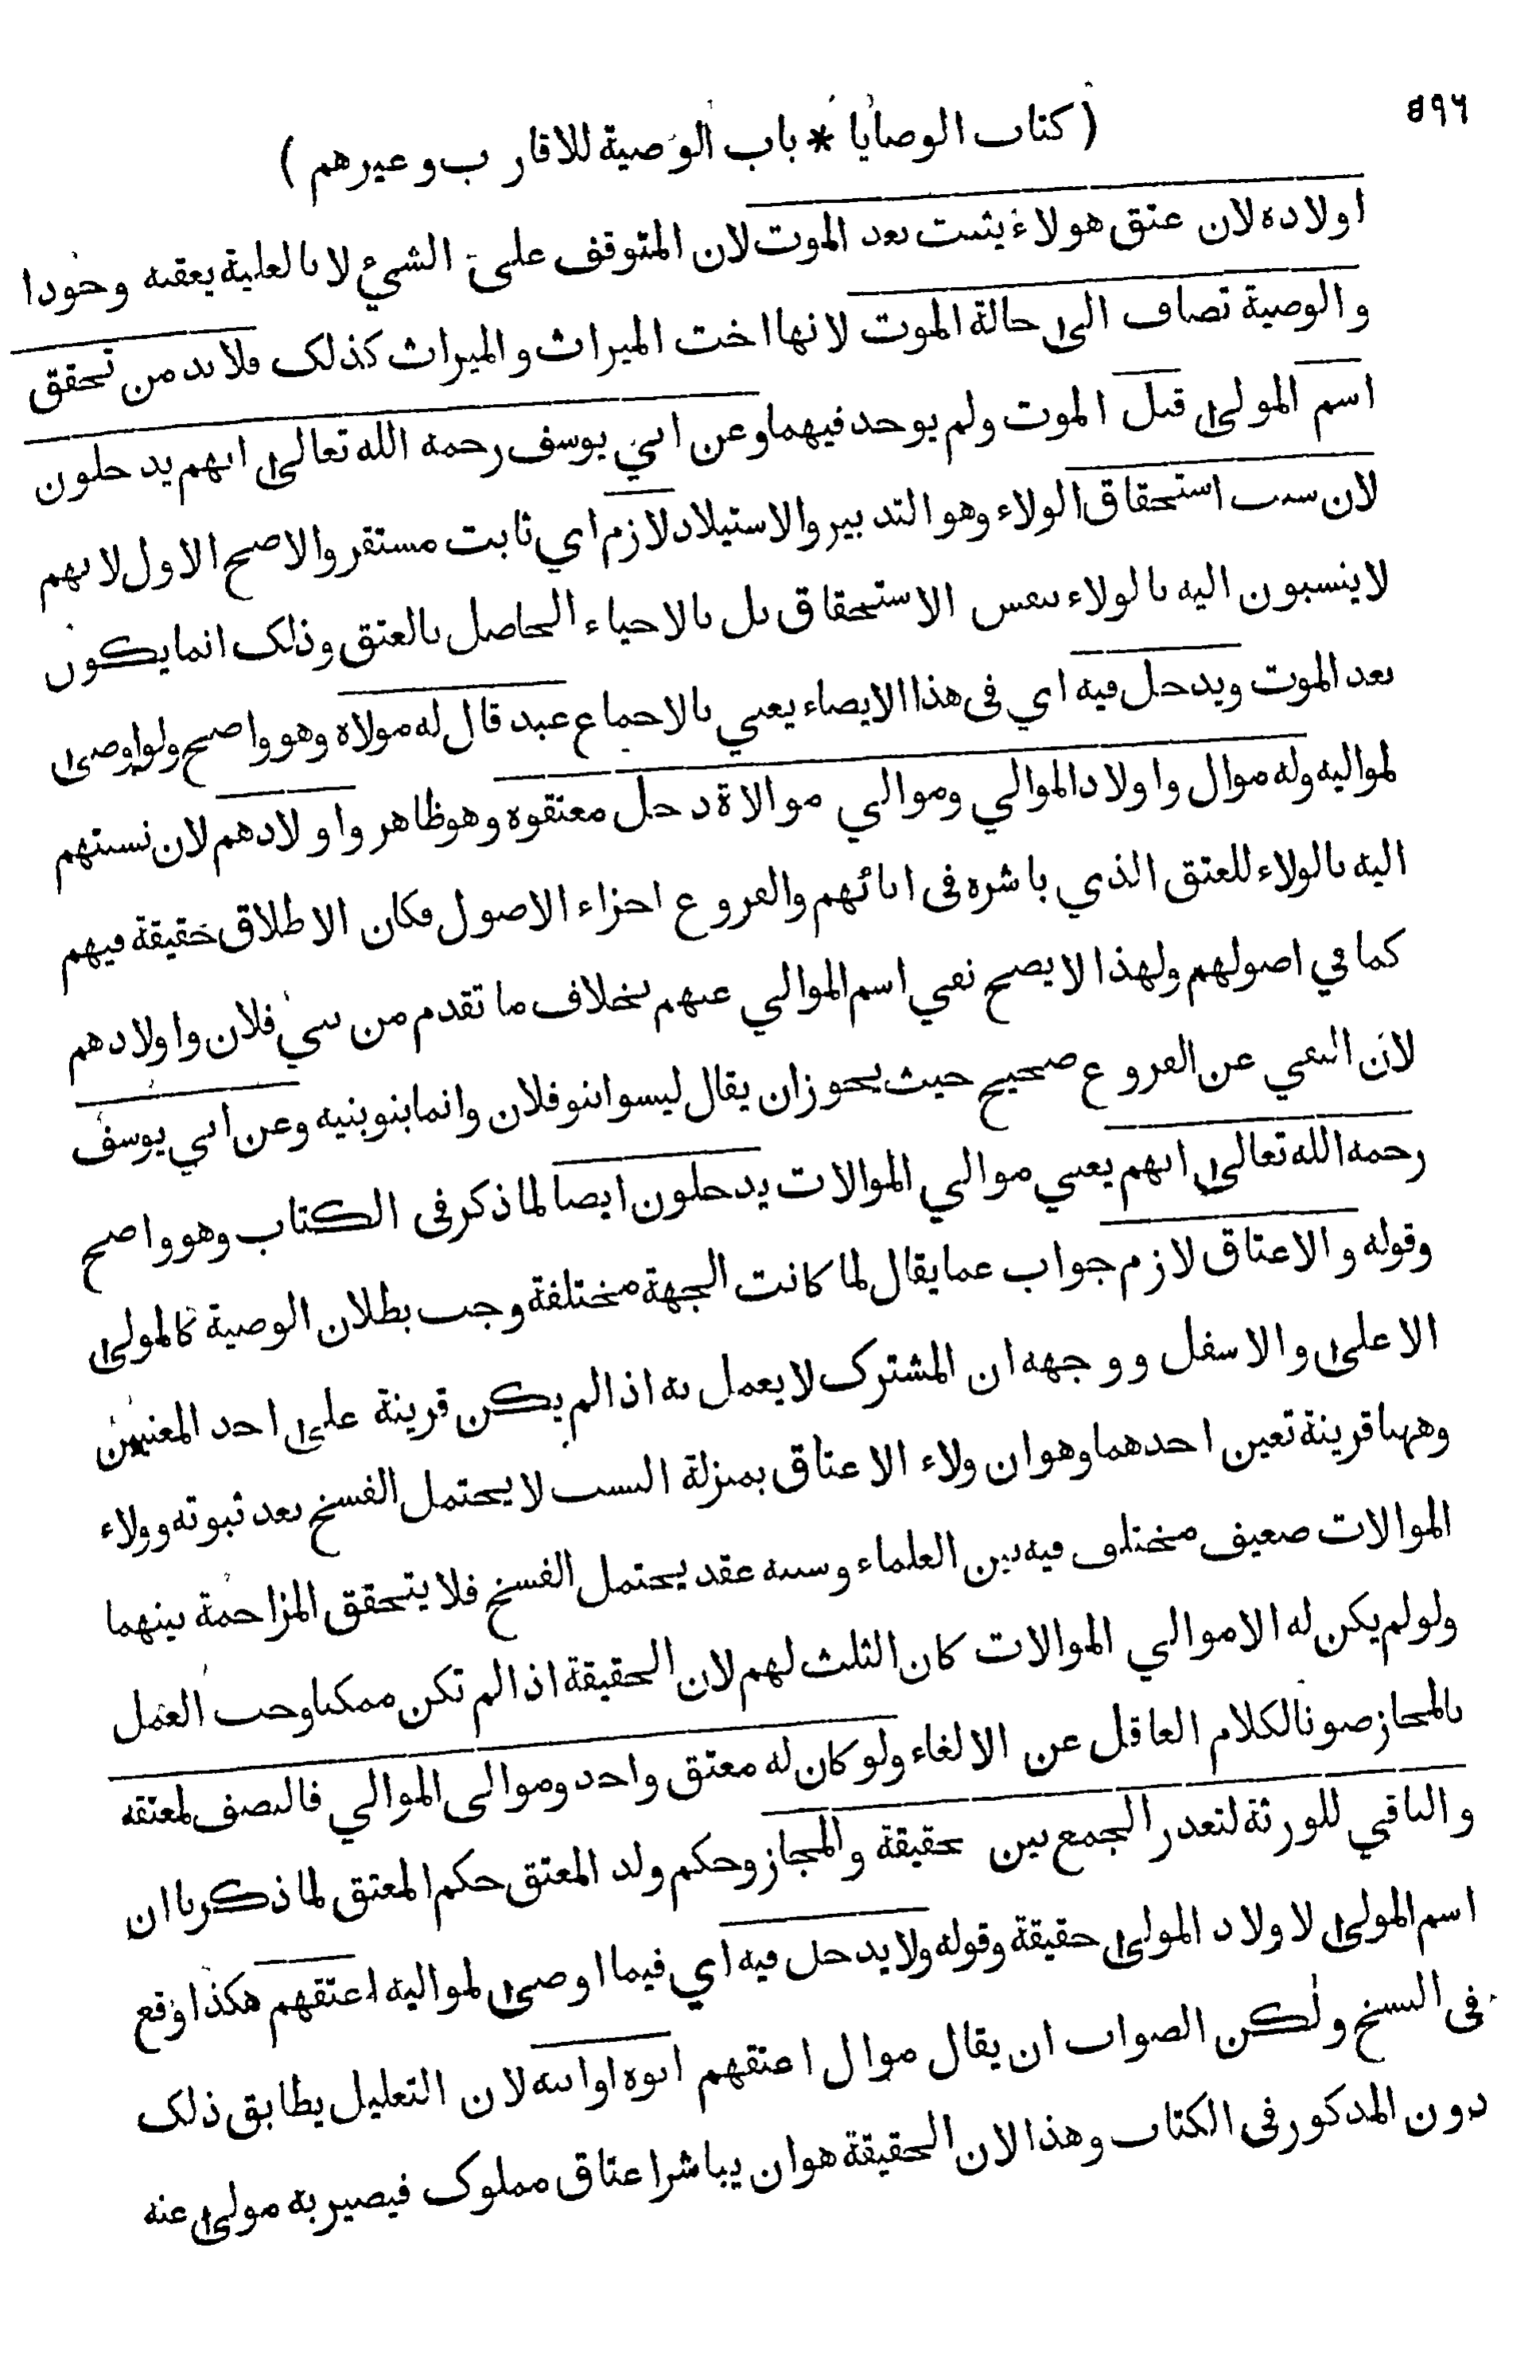 ٥٩٦
( كتاب الوصايا * باب الوصية للاقارب وغيرهم )
اولاده لان عتق هولاء يثبت بعد الموت لان المتوقف على الشيء لا بالعلية يعقبه وجودا
والوصية تضاف الى حالة الموت لانها اخت الميراث والميراث كذلك فلا بد من تحقق
اسم المولى قبل الموت ولم يوجد فيهما وعن ابي يوسف رحمه الله تعالى انهم يدخلون
لان سبب استحقاق الولاء وهو التدبير والاستيلاد لازم اي ثابت مستقر والاصح الاول لانهم
لا ينسبون اليه بالولاء بنفس الاستحقاق بل بالاحياء الحاصل بالعتق وذلك انما يكون
بعد الموت ويدخل فيه اي في هذا الايصاء يعني بالاجماع عبد قال له مولاه وهو واضح ولو اوصى
لمواليه وله موال واولاد الموالي وموالي موالاة دخل معتقوه وهو ظاهر واولادهم لان نسبتهم
اليه بالولاء للعتق الذي باشره في ابائهم والفروع اجزاء الاصول فكان الاطلاق حقيقة فيهم
كما في اصولهم ولهذا لا يصح نفي اسم الموالي عنهم بخلاف ما تقدم من بني فلان واولادهم
لان النفي عن الفروع صحيح حيث يجوز ان يقال ليسوا بنو فلان وانما بنو بنيه وعن ابي يوسف
رحمه الله تعالى انهم يعني موالي الموالات يدخلون ايضا لما ذكر في الكتاب وهو واضح
وقوله والاعتاق لازم جواب عما يقال لما كانت الجهة مختلفة وجب بطلان الوصية كالمولى
الاعلى والاسفل ووجهه ان المشترك لا يعمل به اذا لم يكن قرينة على احد المعنيين
وههنا قرينة تعين احدهما وهو ان ولاء الاعتاق بمنزلة النسب لا يحتمل الفسخ بعد ثبوته وولاء
الموالات ضعيف مختلف فيه بين العلماء وسببه عقد يحتمل الفسخ فلا يتحقق المزاحمة بينهما
ولو لم يكن له الا موالي الموالات كان الثلث لهم لان الحقيقة اذا لم تكن ممكنا وجب العمل
بالمجاز صونا لكلام العاقل عن الالغاء ولو كان له معتق واحد وموالى الموالي فالنصف لمعتقه
والباقي للورثة لتعذر الجمع بين حقيقة والمجاز وحكم ولد المعتق حكم المعتق لما ذكرنا ان
اسم المولى لاولاد المولى حقيقة وقوله ولا يدخل فيه اي فيما اوصى لمواليه اعتقهم هكذا وقع
في النسخ ولكن الصواب ان يقال موال اعتقهم ابوه او ابنه لان التعليل يطابق ذلك
دون المذكور في الكتاب وهذا لان الحقيقة هو ان يباشر اعتاق مملوك فيصير به مولى عنه